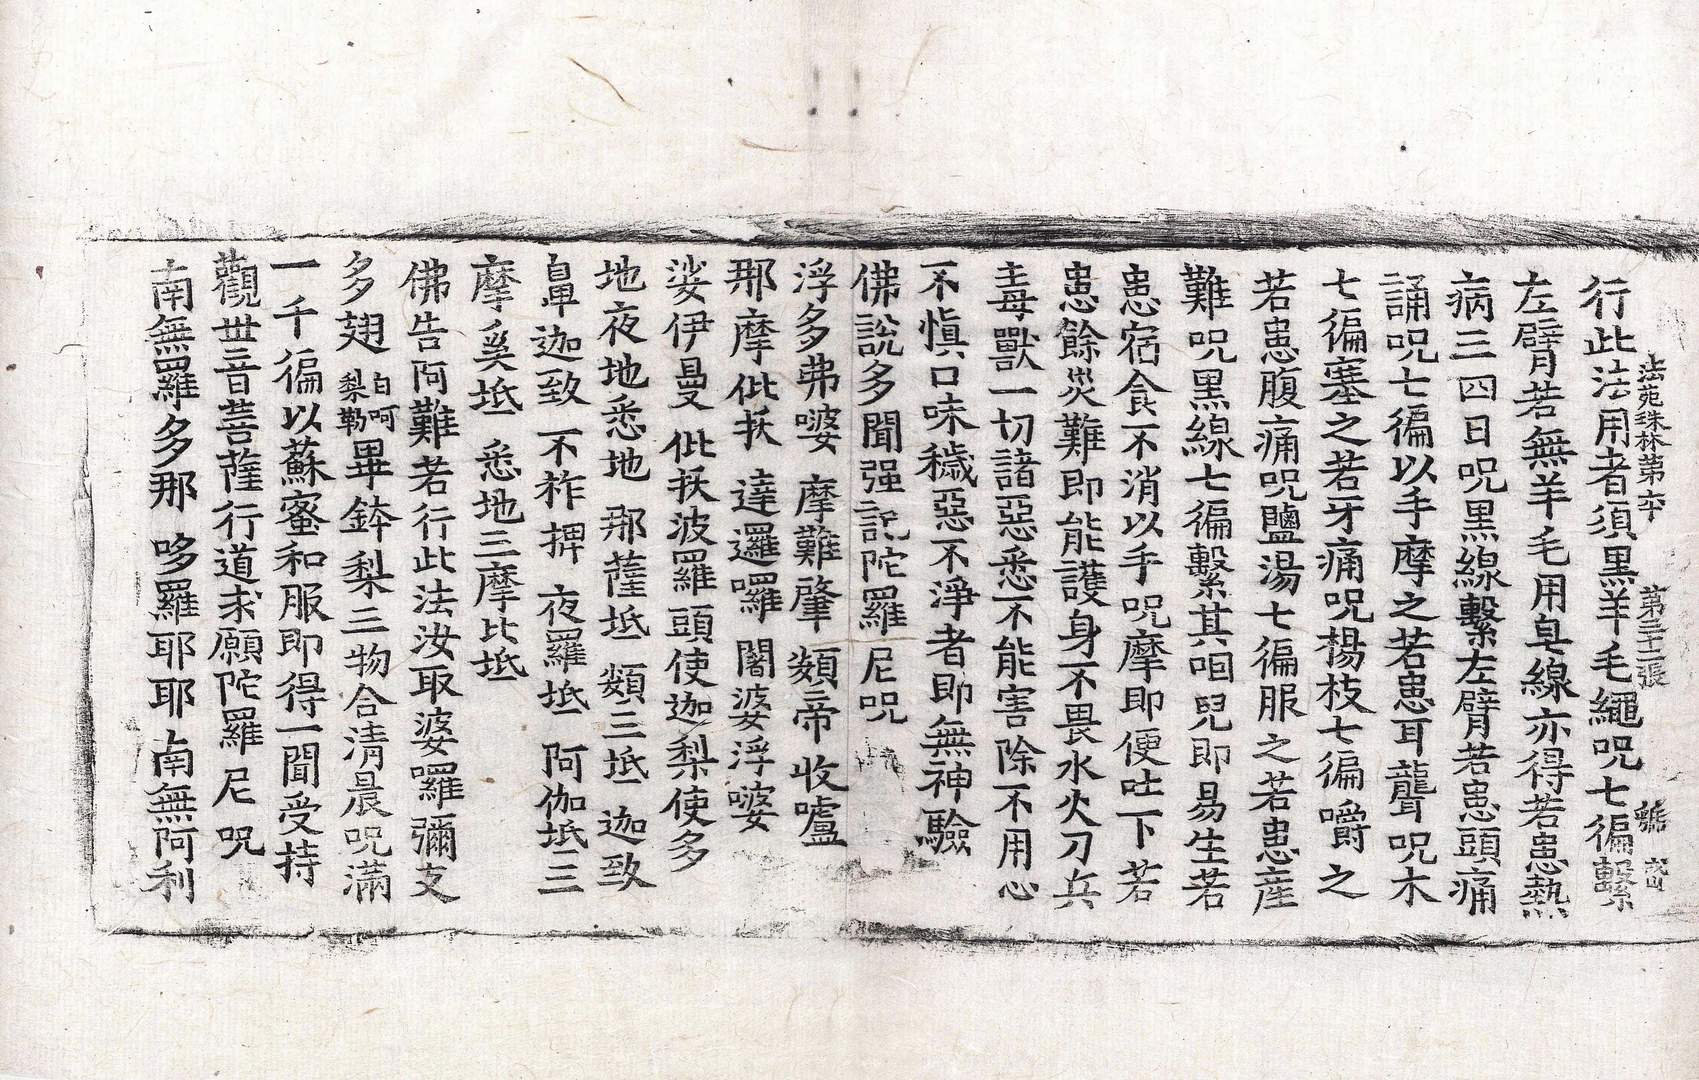 法苑珠林第六十 第三十二張
行此法用者須黑羊毛繩呪七徧繫
左臂若無羊毛用皂線亦得若患熱
病三四日呪黑線繫左臂若患頭痛
誦呪七徧以手摩之若患耳聾呪木
七徧塞之若牙痛呪楊枝七徧嚼之
若患腹痛呪鹽湯七徧服之若患產
難呪黑線七徧繫其咽兒即易生若
患宿食不消以手呪摩即便吐下若
患餘災難即能護身不畏水火刀兵
毒獸一切諸惡悉不能害除不用心
不慎口味穢惡不淨者即無神驗
佛說多聞强記陀羅尼呪
浮多弗嘙 摩難肇 頞帝收嚧
那摩仳挗 達邏囉 闍婆浮嘙
娑伊曼 仳挗波羅頭使迦梨使多
地夜地悉地 那薩坻 頞三坻 迦致
鼻迦致 不祚捭 夜羅坻 阿伽坻三
摩奚坻 悉地三摩比坻
佛告阿難若行此法汝取婆囉彌支
多翅白呵梨勒畢鉢梨三物合清晨呪滿
一千徧以蘇蜜和服即得一聞受持
觀世音菩薩行道求願陀羅尼呪
南無羅多那 哆羅耶耶 南無阿利